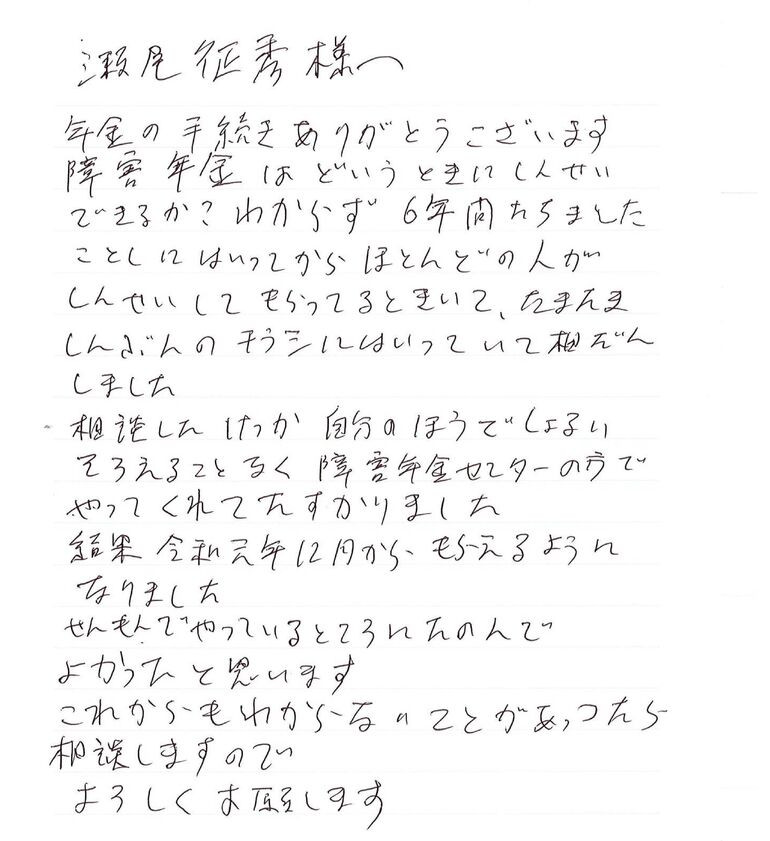 瀬尾征秀様へ
年金の手続きありがとうございます
障害年金はどいうときにしんせい
できるか？わからず6年間たちました
ことしにはいってからほとんどの人が
しんせいしてもらってるときいて、たまたま
しんぶんのチラシにはいっていて相だん
しました
相談したけっか自分のほうでしょるい
そろえることなく障害年金センターの方で
やってくれてたすかりました
結果令和元年12月からもらえるように
なりました
せんもんでやっているところにたのんで
よかったと思います
これからもわからないことがあっつたら
相談しますので
よろしくお願します